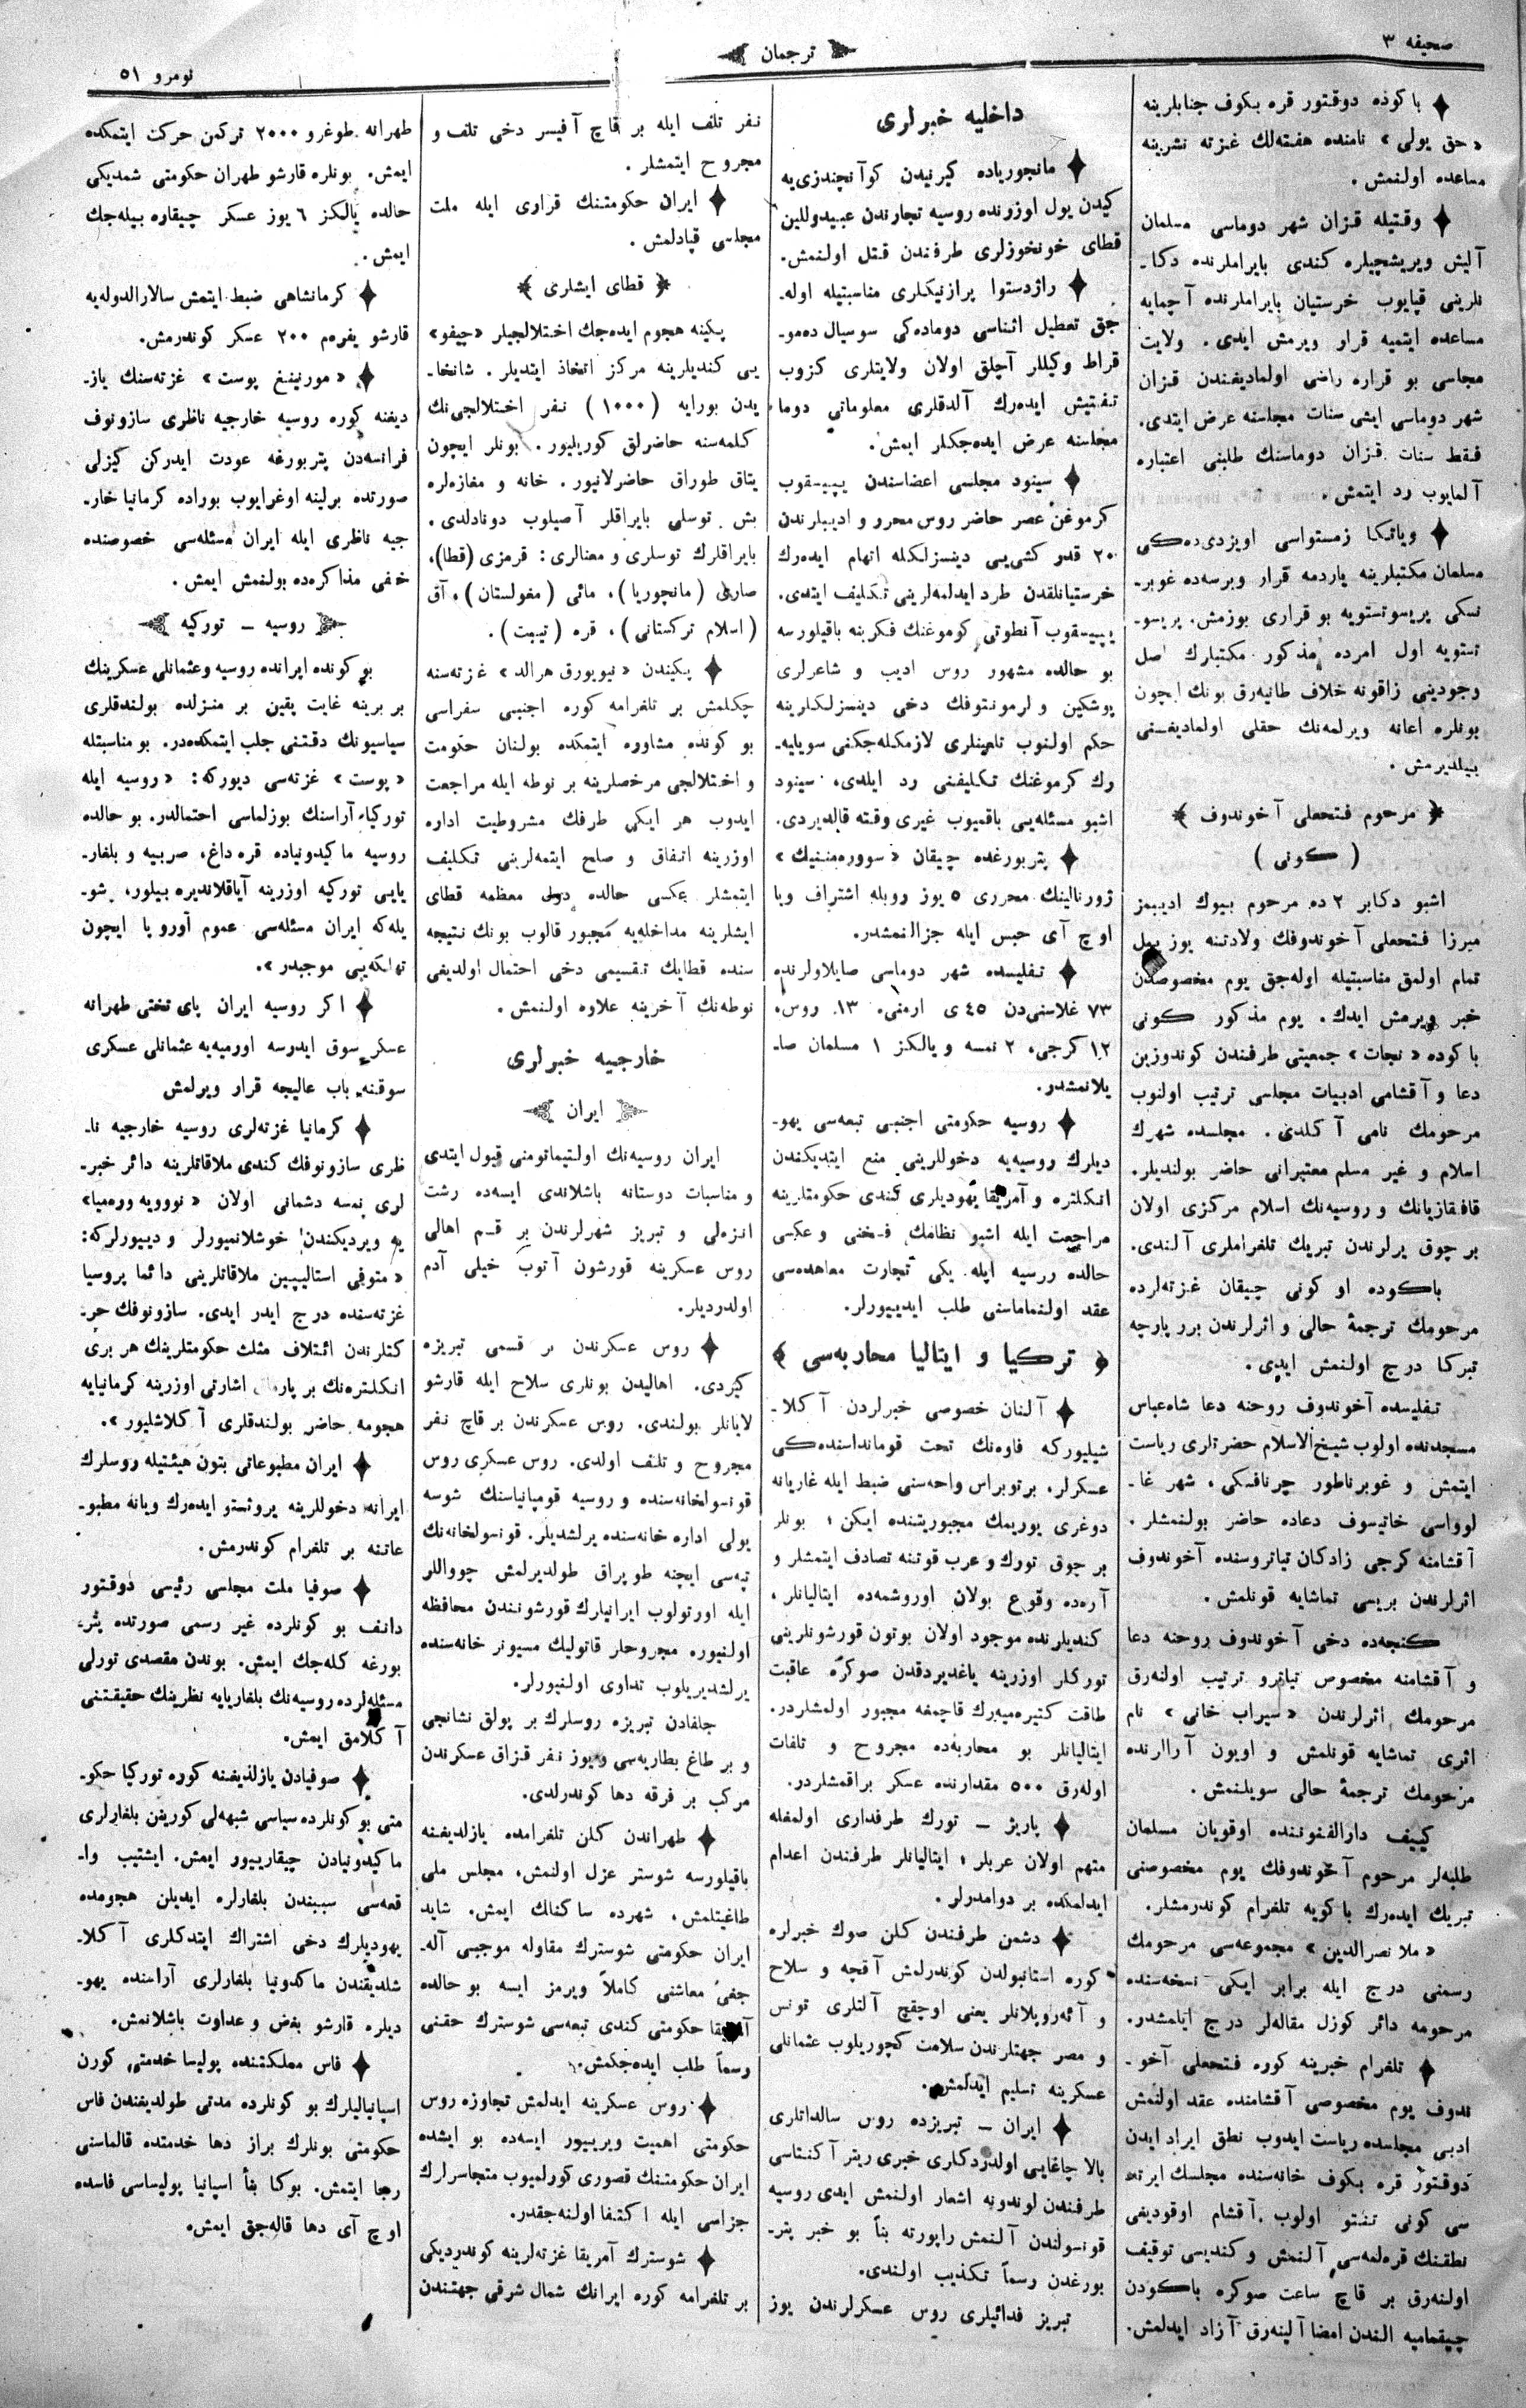 صحيفه ٣
ترجمان
نومرو ٥١
باكوده دوقتور قره بكوف جنابلرينه
«حق يولى» نامنده هفته‌لك غزته نشرينه
مساعده اولنمش.
وقتيله قزان شهر دوماسى مسلمان
آليش ويريشچيلره كندى بايراملرنده دكا-
نلرينى قپايوب خرستيان بايراملرنده آچمايه
مساعده ايتميه قرار ويرمش ايدى. ولايت
مجلسى بو قراره راضى اولماديغندن قزان
شهر دوماسى ايشى سنات مجلسنه عرض ايتدى.
فقط سنات قزان دوماسنك طلبنى اعتباره
آلمايوب رد ايتمش.
وياتكا زمستواسى اويزدى‌ده‌كى
مسلمان مكتبلرينه ياردمه قرار ويرسه‌ده غوبر-
نسكى پريسوتستويه بو قرارى بوزمش. پريسو-
تستويه اول امرده مذكور مكتبلرك اصل
وجودينى زاقونه خلاف طانيه‌رق بونك ايچون
بونلره اعانه ويرلمه‌نك حقلى اولماديغنى
بيلديرمش.
﴿ مرحوم فتحعلى آخوندوف ﴾
( كونى )
اشبو دكابر ٢ ده مرحوم بيوك اديبمز
ميرزا فتحعلى آخوندوفك ولادتنه يوز ييل
تمام اولمق مناسبتيله اوله‌جق يوم مخصوصدن
خبر ويرمش ايدك. يوم مذكور كونى
باكوده «نجات» جمعيتى طرفندن كوندوزين
دعا و آقشامى ادبيات مجلسى ترتيب اولنوب
مرحومك نامى آكلدى. مجلسده شهرك
اسلام و غير مسلم معتبرانى حاضر بولنديلر.
قافقازيانك و روسيه‌نك اسلام مركزى اولان
بر چوق يرلرندن تبريك تلغراملرى آلندى.
باكوده او كونى چيقان غزته‌لرده
مرحومك ترجمهٔ حالى و اثرلرندن برر پارچه
تبركا درج اولنمش ايدى.
تفليسده آخوندوف روحنه دعا شاه‌عباس
مسجدنده اولوب شيخ‌الاسلام حضرتلرى رياست
ايتمش و غوبرناطور چرنافسكى، شهر غا-
لوواسى خاتيسوف دعاده حاضر بولنمشلر.
آقشامنه كرجى زادكان تياتروسنده آخوندوف
اثرلرندن بريسى تماشايه قونلمش.
كنجه‌ده دخى آخوندوف روحنه دعا
و آقشامنه مخصوص تياترو ترتيب اولنه‌رق
مرحومك اثرلرندن «سيراب خانى» نام
اثرى تماشايه قونلمش و اويون آرالرنده
مرحومك ترجمهٔ حالى سويلنمش.
كييف دارالفنوننده اوقويان مسلمان
طلبه‌لر مرحوم آخوندوفك يوم مخصوصنى
تبريك ايده‌رك باكويه تلغرام كوندرمشلر.
«ملا نصرالدين» مجموعه‌سى مرحومك
رسمنى درج ايله برابر ايكى نسخه‌سنده
مرحومه دائر كوزل مقاله‌لر درج ايلمشدر.
تلغرام خبرينه كوره فتحعلى آخو-
ندوف يوم مخصوصى آقشامنده عقد اولنمش
ادبى مجلسده رياست ايدوب نطق ايراد ايدن
دوقتور قره بكوف خانه‌سنده مجلسك ايرته
سى كونى تفتو اولوب. آقشام اوقوديغى
نطقنك قره‌لمه‌سى آلنمش و كنديسى توقيف
اولنه‌رق بر قاچ ساعت صوكره باكودن
چيقماميه الندن امضا آلينه‌رق آزاد ايدلمش.
داخليه خبرلرى
مانجورياده كيرنيدن كوآنچندزى‌يه
كيدن يول اوزرنده روسيه تجارندن عبيدوللين
قطاى خونخوزلرى طرفندن قتل اولنمش.
راژدستوا پرازنيكلرى مناسبتيله اوله-
جق تعطيل اثناسى دوماده‌كى سوسيال ده‌مو-
قراط وكيللر آچلق اولان ولايتلرى كزوب
تفتيش ايده‌رك آلدقلرى معلوماتى دوما
مجلسنه عرض ايده‌جكلر ايمش.
سينود مجلسى اعضاسندن يپيسقوب
كرموغن عصر حاضر روس محرر و اديبلرندن
٢٠ قدر كشى‌يى دينسزلكله اتهام ايده‌رك
خرستيانلقدن طرد ايدلمه‌لرينى تكليف ايتدى.
يپيسقوب آنطونى كرموغنك فكرينه باقيلورسه
بو حالده مشهور روس اديب و شاعرلرى
پوشكين و لرمونتوفك دخى دينسزلكلرينه
حكم اولنوب تلعينلرى لازمكله‌جكنى سويليه-
رك كرموغنك تكليفنى رد ايلدى، سينود
اشبو مسئله‌يى باقميوب غيرى وقته قالديردى.
پتربورغده چيقان «سووره‌مننيك»
ژورنالينك محررى ٥ يوز روبله اشتراف ويا
اوچ آى حبس ايله جزالنمشدر.
تفليسده شهر دوماسى صايلاولرنده
٧٣ غلاسنى‌دن ٤٥ ى ارمنى، ١٣ روس،
١٢ كرجى، ٢ نمسه و يالكز ١ مسلمان صا-
يلانمشدر.
روسيه حكومتى اجنبى تبعه‌سى يهو-
ديلرك روسيه‌يه دخوللرينى منع ايتديكندن
انكلتره و آمريقا يهوديلرى كندى حكومتلرينه
مراجعت ايله اشبو نظامك فسخنى و عكسى
حالده روسيه ايله يكى تجارت معاهده‌سى
عقد اولنماماسنى طلب ايدييورلر.
﴿ تركيا و ايتاليا محاربه‌سى ﴾
آلنان خصوصى خبرلردن آكلا-
شيليوركه فاوه‌نك تحت قومانداسنده‌كى
عسكرلر، برتوبراس واحه‌سنى ضبط ايله غاريانه
دوغرى يوريمك مجبوريتنده ايكن؛ بونلر
بر چوق تورك و عرب قوتنه تصادف ايتمشلر و
آره‌ده وقوع بولان اوروشمه‌ده ايتاليانلر،
كنديلرنده موجود اولان بوتون قورشونلرينى
توركلر اوزرينه ياغديردقدن صوكره عاقبت
طاقت كتيره‌ميه‌رك قاچمغه مجبور اولمشلردر.
ايتاليانلر بو محاربه‌ده مجروح و تلفات
اوله‌رق ٥٠٠ مقدارنده عسكر براقمشلردر.
پاريژ – تورك طرفدارى اولمغله
متهم اولان عربلر؛ ايتاليانلر طرفندن اعدام
ايدلمكده بر دوامدرلر.
دشمن طرفندن كلن صوك خبرلره
كوره استانبولدن كوندرلمش آقچه و سلاح
و آئه‌روپلانلر يعنى اوچقچ آلتلرى تونس
و مصر جهتلرندن سلامت كچوريلوب عثمانلى
عسكرينه تسليم ايدلمش.
ايران – تبريزده روس سالداتلرى
بالا چاغايى اولدردكلرى خبرى ريتر آكنتاسى
طرفندن لوندونه اشعار اولنمش ايدى روسيه
قونسولندن آلنمش راپورته بناً بو خبر پتر-
بورغدن رسماً تكذيب اولندى.
تبريز فدائيلرى روس عسكرلرندن يوز
نفر تلف ايله بر قاچ آفيسر دخى تلف و
مجروح ايتمشلر.
ايران حكومتنك قرارى ايله ملت
مجلسى قپادلمش.
﴿ قطاى ايشلرى ﴾
پكينه هجوم ايده‌جك اختلالجيلر «چيفو»
يى كنديلرينه مركز اتخاذ ايتديلر. شانخا-
يدن بورايه (١٠٠٠) نفر اختلالجى‌نك
كلمه‌سنه حاضرلق كوريليور. بونلر ايچون
يتاق طوراق حاضرلانيور. خانه و مغازه‌لره
بش توسلى بايراقلر آصيلوب دونادلدى.
بايراقلرك توسلرى و معنالرى: قرمزى (قطا)،
صارى (مانچوريا)، مائى (مغولستان)، آق
(اسلام تركستانى)، قره (تيبت).
پكيندن «نيويورق هرالد» غزته‌سنه
چكلمش بر تلغرامه كوره اجنبى سفراسى
بو كونده مشاوره ايتمكده بولنان حكومت
و اختلالجى مرخصلرينه بر نوطه ايله مراجعت
ايدوب هر ايكى طرفك مشروطيت اداره
اوزرينه اتفاق و صلح ايتمه‌لرينى تكليف
ايتمشلر عكسى حالده دول معظمه قطاى
ايشلرينه مداخله‌يه مجبور قالوب بونك نتيجه
سنده قطايك تقسيمى دخى احتمال اولديغى
نوطه‌نك آخرينه علاوه اولنمش.
خارجيه خبرلرى
ايران
ايران روسيه‌نك اولتيماتومنى قبول ايتدى
و مناسبات دوستانه باشلاندى ايسه‌ده رشت
انزه‌لى و تبريز شهرلرندن بر قسم اهالى
روس عسكرينه قورشون آتوب خيلى آدم
اولدرديلر.
روس عسكرندن بر قسمى تبريزه
كيردى. اهاليدن بونلرى سلاح ايله قارشو
لايانلر بولندى. روس عسكرندن بر قاچ نفر
مجروح و تلف اولدى. روس عسكرى روس
قونسولخانه‌سنده و روسيه قومپانياسنك شوسه
يولى اداره خانه‌سنده يرلشديلر. قونسولخانه‌نك
تپه‌سى ايچنه طوپراق طولديرلمش چوواللر
ايله اورتولوب ايرانيلرك قورشونندن محافظه
اولنيور. مجروحلر قاتوليك مسيونر خانه‌سنده
يرلشديريلوب تداوى اولنيورلر.
جلفادن تبريزه روسلرك بر پولق نشانجى
و بر طاغ بطاريه‌سى و يوز نفر قزاق عسكرندن
مركب بر فرقه دها كوندرلدى.
طهراندن كلن تلغرامده يازلديغنه
باقيلورسه شوستر عزل اولنمش، مجلس ملى
طاغيتلمش، شهرده ساكنلك ايمش. شايد
ايران حكومتى شوسترك مقاوله موجبى آله-
جغى معاشنى كاملاً ويرمز ايسه بو حالده
آمريقا حكومتى كندى تبعه‌سى شوسترك حقنى
رسماً طلب ايده‌جكمش.
روس عسكرينه ايدلمش تجاوزه روس
حكومتى اهميت ويرييور ايسه‌ده بو ايشده
ايران حكومتنك قصورى كورلميوب متجاسرلرك
جزاسى ايله اكتفا اولنه‌جقدر.
شوسترك آمريقا غزته‌لرينه كوندرديكى
بر تلغرامه كوره ايرانك شمال شرقى جهتندن
طهرانه طوغرو ٢٠٠٠ تركمن حركت ايتمكده
ايمش. بونلره قارشو طهران حكومتى شمديكى
حالده يالكز ٦ يوز عسكر چيقاره بيله‌جك
ايمش.
كرمانشاهى ضبط ايتمش سالارالدوله‌يه
قارشو يفرم ٢٠٠ عسكر كوندرمش.
«مورنينغ پوست» غزته‌سنك ياز-
ديغنه كوره روسيه خارجيه ناظرى سازونوف
فرانسه‌دن پتربورغه عودت ايدركن كيزلى
صورتده برلينه اوغرايوب بوراده كرمانيا خار-
جيه ناظرى ايله ايران مسئله‌سى خصوصنده
خفى مذاكره‌ده بولنمش ايمش.
روسيه – توركيه
بو كونده ايرانده روسيه وعثمانلى عسكرينك
بر برينه غايت يقين بر منزلده بولندقلرى
سياسيونك دقتنى جلب ايتمكده‌در. بو مناسبتله
«پوست» غزته‌سى ديوركه: «روسيه ايله
توركيا، آراسنك بوزلماسى احتمالدر. بو حالده
روسيه ماكيدونياده قره داغ، صربيه و بلغار-
يايى توركيه اوزرينه آياقلانديره بيلور، شو-
يله‌كه ايران مسئله‌سى عموم آوروپا ايچون
تهلكه‌يى موجبدر».
اكر روسيه ايران پاى تختى طهرانه
عسكر سوق ايدرسه اورميه‌يه عثمانلى عسكرى
سوقنه باب عاليجه قرار ويرلمش
كرمانيا غزته‌لرى روسيه خارجيه نا-
ظرى سازونوفك كندى ملاقاتلرينه دائر خبر-
لرى نمسه دشمانى اولان «نووويه وره‌ميا»
يه ويرديكندن خوشلانميورلر و دييورلركه:
«متوفى استاليپين ملاقاتلرينى دائما پروسيا
غزته‌سنده درج ايدر ايدى. سازونوفك حر-
كتلرندن ائتلاف مثلث حكومتلرينك هر برى
انكلتره‌نك بر اشارتى اوزرينه كرمانيايه
هجومه حاضر بولندقلرى آكلاشليور».
ايران مطبوعاتى بتون هيئتيله روسلرك
ايرانه دخوللرينه پروتستو ايده‌رك ويانه مطبو-
عاتنه بر تلغرام كوندرمش.
صوفيا ملت مجلسى رئيسى دوقتور
دانف بو كونلرده غير رسمى صورتده پتر-
بورغه كله‌جك ايمش. بوندن مقصدى تورلى
مسئله‌لرده روسيه‌نك بلغاريايه نظرينك حقيقتنى
آكلامق ايمش.
صوفيادن يازلديغنه كوره توركيا حكو-
متى بو كونلرده سياسى شبهه‌لى كورينن بلغارلرى
ماكيدونيادن چيقارييور ايمش. ايشتيب وا-
قعه‌سى سببندن بلغارلره ايديلن هجومده
يهوديلرك دخى اشتراك ايتدكلرى آكلا-
شلديقندن ماكدونيا بلغارلرى آراسنده يهو-
ديلره قارشو بغض و عداوت باشلانمش.
فاس مملكتنده پوليسا خدمتى كورن
اسپانياليلرك بو كونلرده مدتى طولديغندن فاس
حكومتى بونلرك براز دها خدمتده قالماسنى
رجا ايتمش. بوكا بناً اسپانيا پوليساسى فاسده
اوچ آى دها قاله‌جق ايمش.